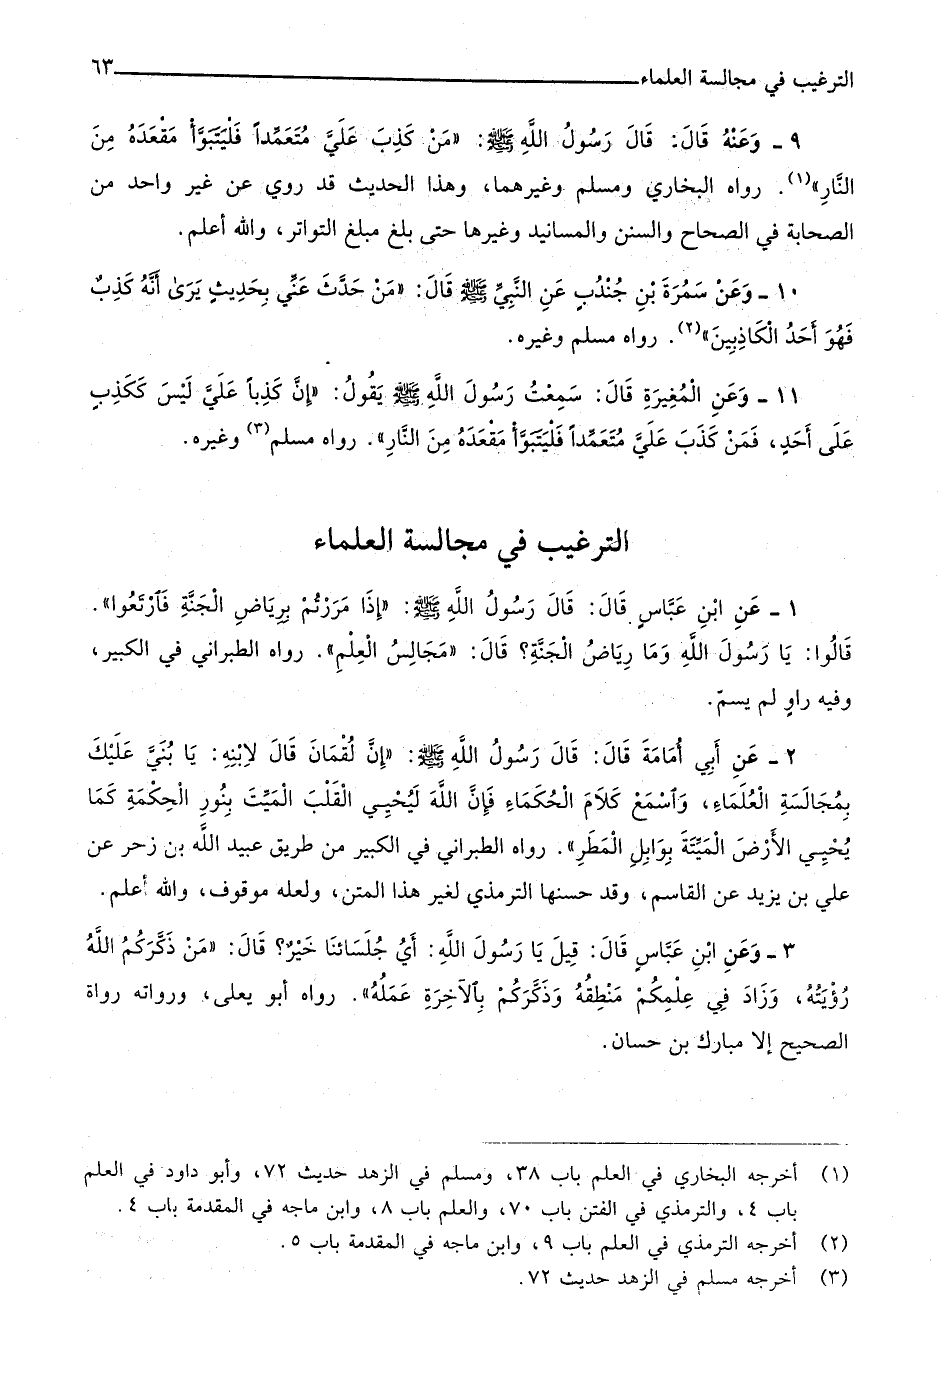 الترغيب في مجالسة العلماء ٦٣
٩ ـ وَعَنْهُ قَالَ: قَالَ رَسُولُ اللَّهِ ﷺ: «مَنْ كَذِبَ عَلَيَّ مُتَعَمِّداً فَلْيَتَبَوَّأْ مَقْعَدَهُ مِنَ
النَّارِ»(١). رواه البخاري ومسلم وغيرهما، وهذا الحديث قد روي عن غير واحد من
الصحابة في الصحاح والسنن والمسانيد وغيرها حتى بلغ مبلغ التواتر، والله أعلم.
١٠ ـ وَعَنْ سَمُرَةَ بْنِ جُنْدُبٍ عَنِ النَّبِيِّ ﷺ قَالَ: «مَنْ حَدَّثَ عَنِّي بِحَدِيثٍ يَرَىٰ أَنَّهُ كَذِبٌ
فَهُوَ أَحَدُ الْكَاذِبِينَ»(٢). رواه مسلم وغيره.
١١ ـ وَعَنِ الْمُغِيرَةِ قَالَ: سَمِعْتُ رَسُولَ اللَّهِ ﷺ يَقُولُ: «إِنَّ كَذِباً عَلَيَّ لَيْسَ كَكَذِبٍ
عَلَى أَحَدٍ، فَمَنْ كَذَبَ عَلَيَّ مُتَعَمِّداً فَلْيَتَبَوَّأْ مَقْعَدَهُ مِنَ النَّارِ». رواه مسلم(٣) وغيره.
الترغيب في مجالسة العلماء
١ ـ عَنِ ابْنِ عَبَّاسٍ قَالَ: قَالَ رَسُولُ اللَّهِ ﷺ: «إِذَا مَرَرْتُمْ بِرِيَاضِ الْجَنَّةِ فَٱرْتَعُوا».
قَالُوا: يَا رَسُولَ اللَّهِ وَمَا رِيَاضُ الْجَنَّةِ؟ قَالَ: «مَجَالِسُ الْعِلْمِ». رواه الطبراني في الكبير،
وفيه راوٍ لم يسمّ.
٢ ـ عَنِ أَبِي أُمَامَةَ قَالَ: قَالَ رَسُولُ اللَّهِ ﷺ: «إِنَّ لُقْمَانَ قَالَ لاِبْنِهِ: يَا بُنَيَّ عَلَيْكَ
بِمُجَالَسَةِ الْعُلَمَاءِ، وَٱسْمَعْ كَلاَمَ الْحُكَمَاءِ فَإِنَّ اللَّهَ لَيُحْيِي الْقَلْبَ الْمَيِّتَ بِنُورِ الْحِكْمَةِ كَمَا
يُحْيِي الأَرْضَ الْمَيِّتَةَ بِوَابِلِ الْمَطَرِ». رواه الطبراني في الكبير من طريق عبيد اللَّه بن زحر عن
علي بن يزيد عن القاسم، وقد حسنها الترمذي لغير هذا المتن، ولعله موقوف، والله أعلم.
٣ ـ وَعَنِ ابْنِ عَبَّاسٍ قَالَ: قِيلَ يَا رَسُولَ اللَّهِ: أَيُّ جُلَسَائنَا خَيْرٌ؟ قَالَ: «مَنْ ذَكَّرَكُمُ اللَّهُ
رُؤْيَتُهُ، وَزَادَ فِي عِلْمِكُمْ مَنْطِقُهُ وَذَكَّرَكُمْ بِٱلآخِرَةِ عَمَلُهُ». رواه أبو يعلى، ورواته رواة
الصحيح إلا مبارك بن حسان.
(١) أخرجه البخاري في العلم باب ٣٨، ومسلم في الزهد حديث ٧٢، وأبو داود في العلم
باب ٤، والترمذي في الفتن باب ٧٠، والعلم باب ٨، وابن ماجه في المقدمة باب ٤.
(٢) أخرجه الترمذي في العلم باب ٩، وابن ماجه في المقدمة باب ٥.
(٣) أخرجه مسلم في الزهد حديث ٧٢.